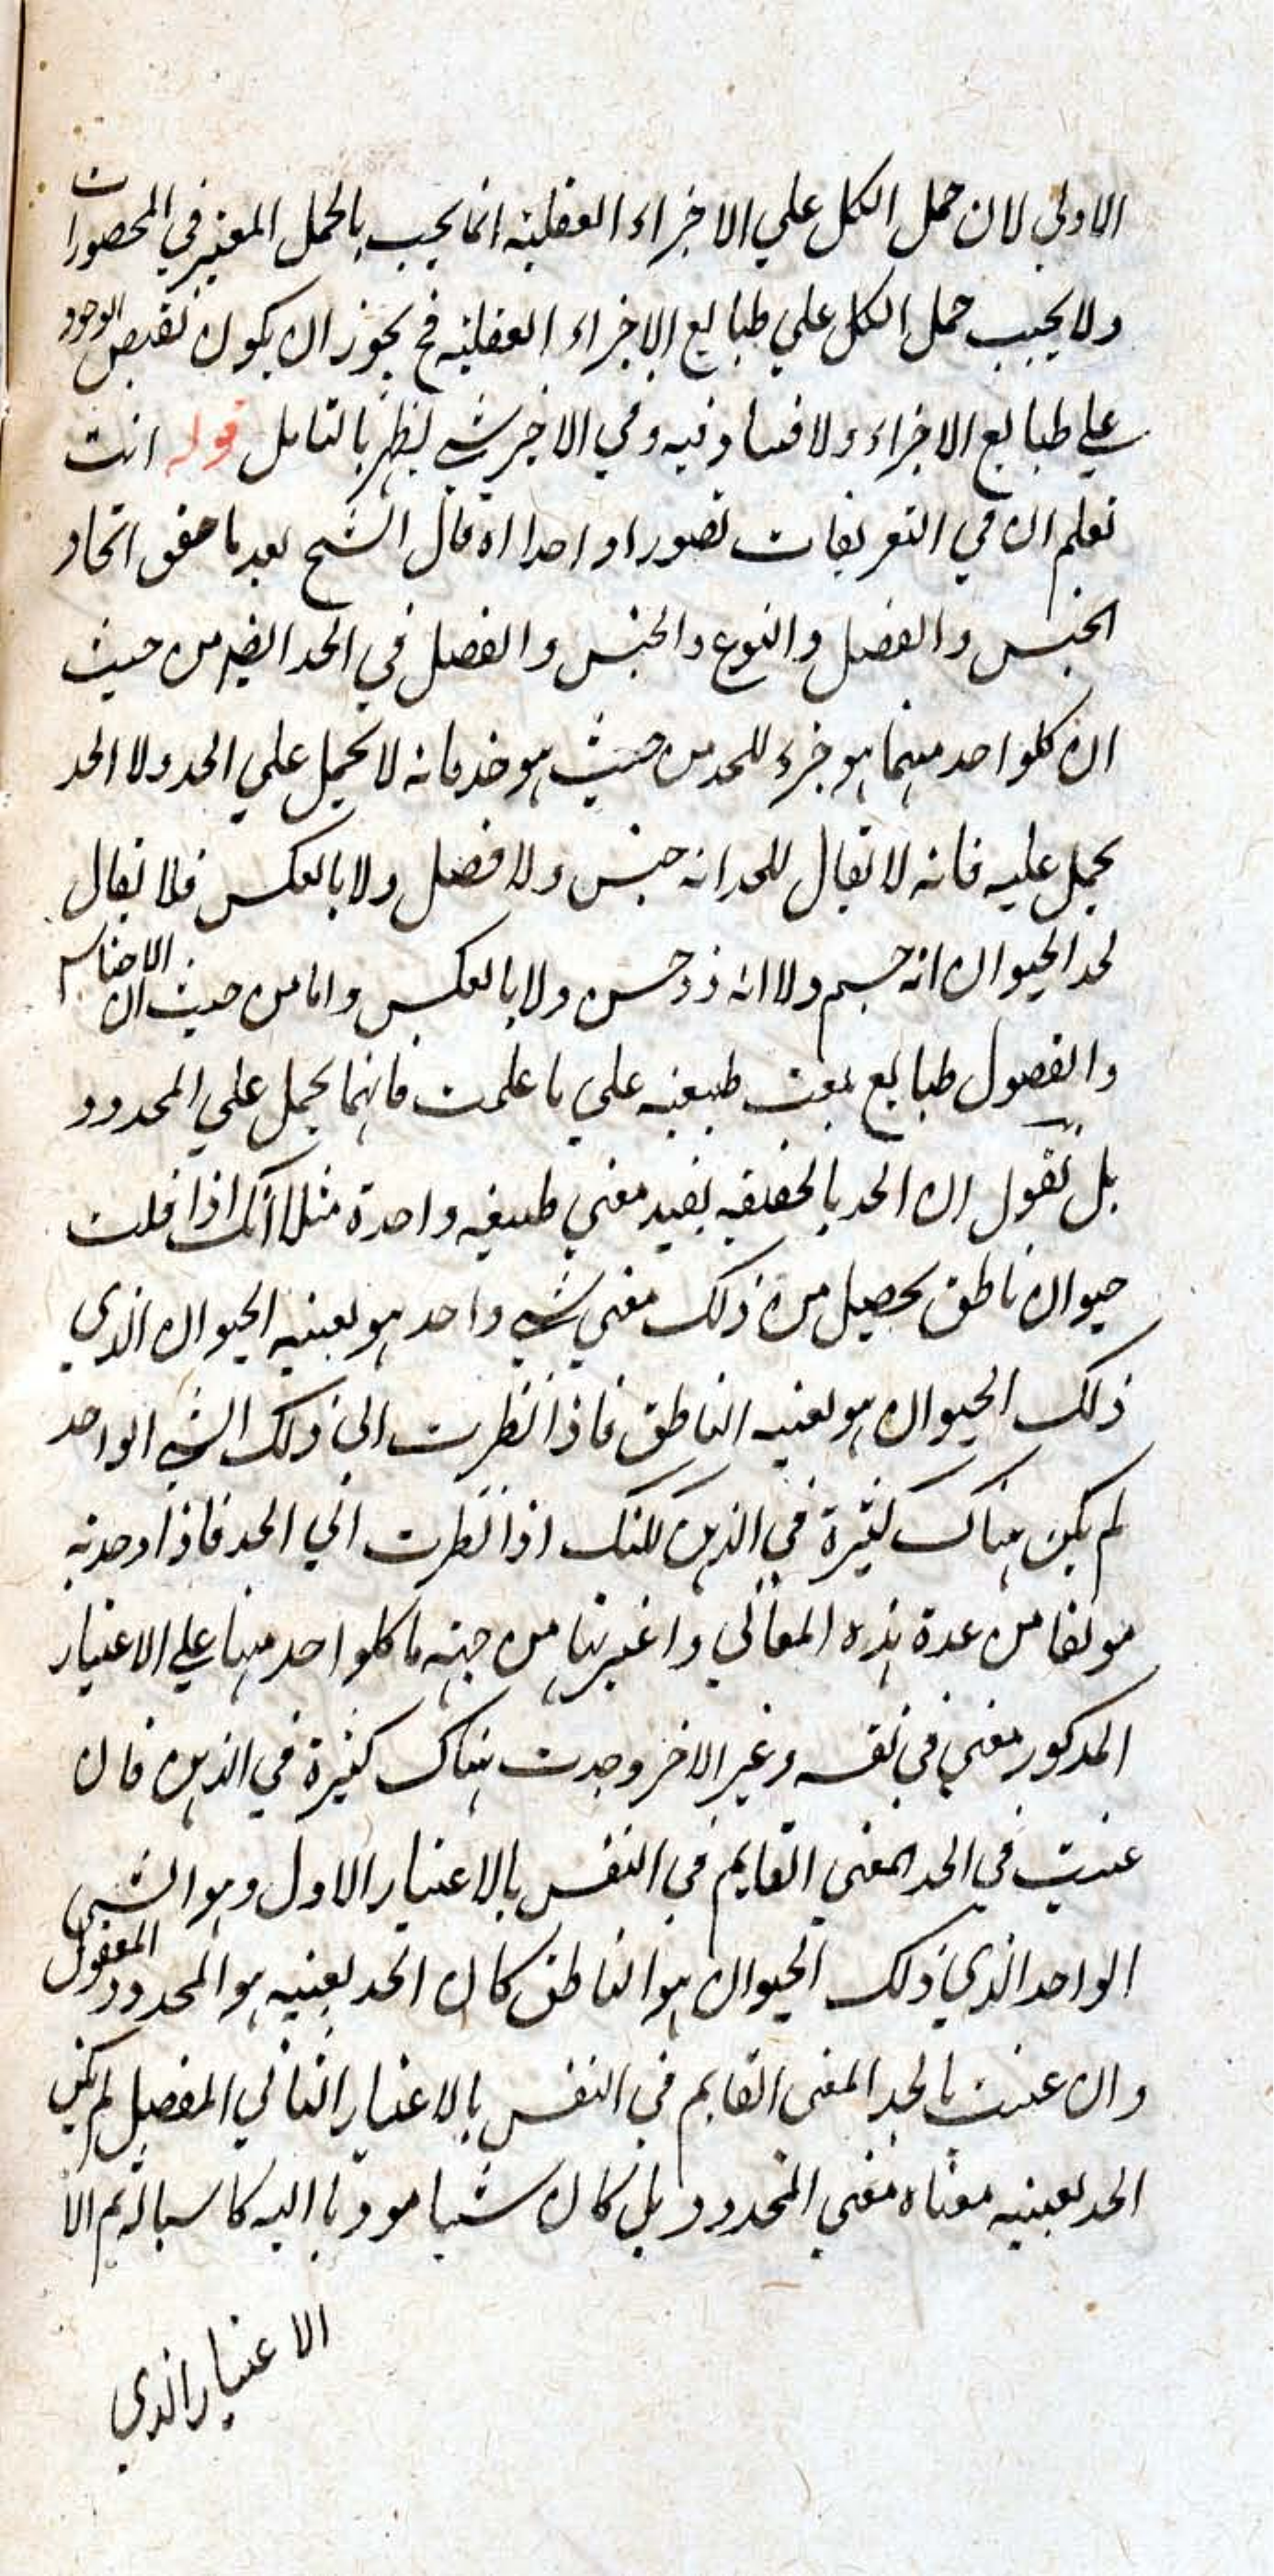 الاولي لان حمل الكل علي الاجزاء العقلية انما يجب بالحمل المعتبر في المحصورات
ولا يجب حمل الكل علي طبايع الاجزاء العقلية فح يجوز ان يكون نقيض الوجود
علي طبايع الاجزاء ولا فساد فيه وفي الاخير شي يظهر بالتامل قوله انت
تعلم ان في التعريفات تصورا واحدا اه قال الشيخ بعد ما حقق اتحاد
الجنس والفصل والنوع والجنس والفصل في الحد ايضا من حيث
ان كلواحد منهما هو جزء للحد من حيث هو حد فانه لا يحمل علي الحد ولا الحد
يحمل عليه فانه لا يقال للحد انه جنس ولا فصل ولا بالعكس فلا يقال
لحد الحيوان انه جسم ولا انه ذو حس ولا بالعكس واما من حيث ان الاجناس
والفصول طبايع بعت طبيعة علي ما علمت فانهما يحمل علي المحدود
بل نقول ان الحد بالحقيقه يفيد معني طبيعه واحدة مثلا انك اذا قلت
حيوان ناطق يحصل من ذلك معني شي واحد هو بعينه الحيوان الذي
ذلك الحيوان هو بعينه الناطق فاذا نظرت الي ذلك الشي الواحد
لم يكن هناك كثرة في الذهن لكنك اذا نظرت الي الحد فاذا وجدته
مولفا من عدة هذه المعاني واعتبرتها من جهة ما كلواحد منها علي الاعتبار
المذكور معني في نفسه وغير الاخر وجدت هناك كثرة في الذهن فان
عنيت في الحد المعني القايم في النفس بالاعتبار الاول وهو الشي
الواحد الذي ذلك الحيوان هو الناطق كان الحد بعينه هو المحدود المعقول
وان عنيت بالحد المعني القايم في النفس بالاعتبار الثاني المفصل لم يكن
الحد بعينه معناه معني المحدود بل كان شيا موديا اليه كاسبا له ثم الا
الاعتبار الذي